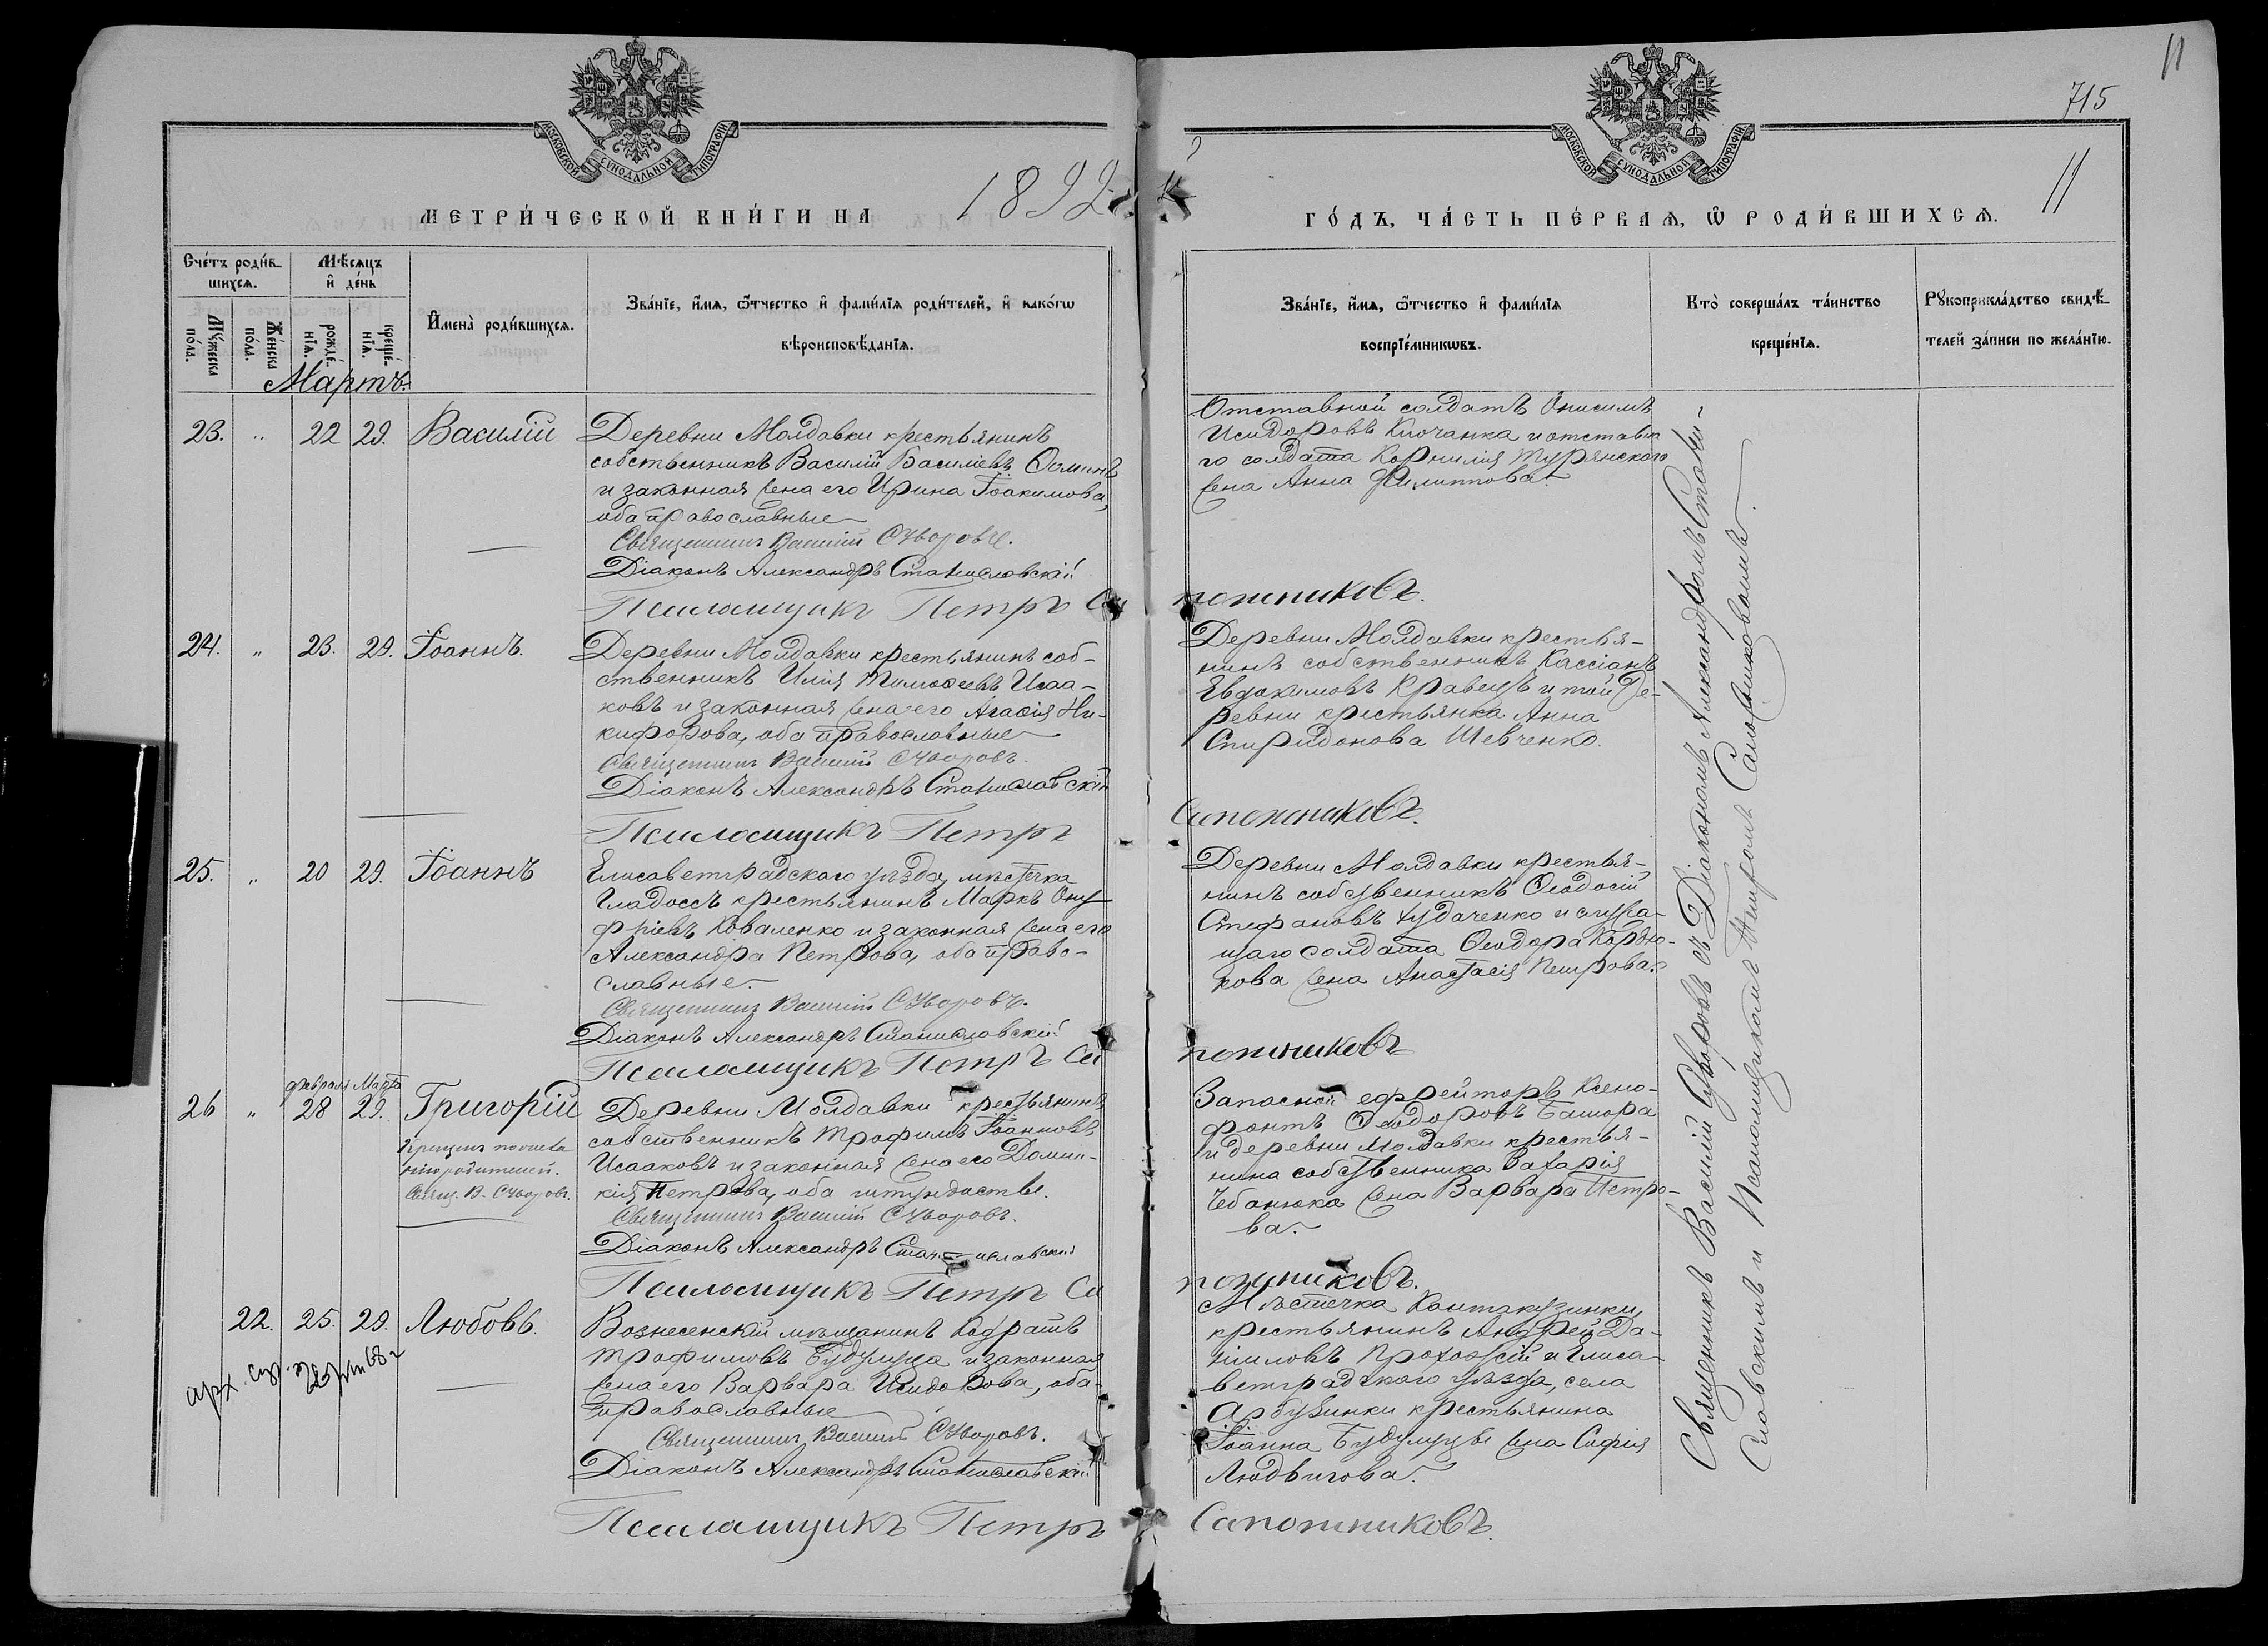 11
715
МОСКОВСКОЙ СѴНОДАЛЬНОЙ ТИПОГРАФІИ
МОСКОВСКОЙ СѴНОДАЛЬНОЙ ТИПОГРАФІИ
МЕТРИ́ЧЕСКОЙ КНИ́ГИ НА 1892
ГО́ДЪ, ЧА́СТЬ ПЕ́РВАѦ, Ѿ РОДИ́ВШИХСѦ. 11
Сче́тъ роди́в-
шихсѧ.
Мѣ́сѧцъ
и҆ де́нь
Мꙋ́жеска по́ла.
Же́нска по́ла.
рожде́-нїѧ.
креще́-нїѧ.
И҆мена̀ роди́вшихсѧ.
Зва́нїе, и҆́мѧ, ѻ҆́тчество и҆ фами́лїѧ роди́телей, и҆ како́гѡ
вѣроисповѣ́данїѧ.
Зва́нїе, и҆́мѧ, ѻ҆́тчество и҆ фами́лїѧ
воспрїе́мникѡвъ.
Кто̀ соверша́лъ та́инство
креще́нїѧ.
Рꙋкоприкла́дство свидѣ́-
телей за́писи по жела́нїю.
Мартъ.
23. " 22 29. Василій
Деревни Молдавки крестьянинъ
собственникъ Василій Василіевъ
и законная жена его Ирина Іоакимова,
оба православные
Священникъ Василій Суворовъ.
Діаконъ Александръ Станиславскій
Псаломщикъ Петръ Сапожниковъ.
Отставной солдатъ Онисимъ
Исидоровъ Ключанка и отставно
го солдата Корнилія Турянского
жена Анна Филиппова.
24. " 23. 29. Іоаннъ.
Деревни Молдавки крестьянинъ соб-
ственникъ Илія Тимоѳеевъ Исаа-
ковъ и законная жена его Агаѳія Ни-
кифорова, оба православные
Священникъ Василій Суворовъ.
Діаконъ Александръ Станиславскій
Псаломщикъ Петръ Сапожниковъ.
Деревни Молдавки крестья-
нинъ собственникъ Кассіанъ
Евдокимовъ Кравецъ и той де-
ревни крестьянка Анна
Спиридонова Шевченко.
25. " 20 29. Іоаннъ
Елисаветградскаго уѣзда, мѣстечка
Гладоссъ крестьянинъ Маркъ Ону-
фріевъ Коваленко и законная жена его
Александра Петрова, оба право-
славные.
Священникъ Василій Суворовъ.
Діаконъ Александръ Станиславскій
Псаломщикъ Петръ Сапожниковъ
Деревни Молдавки крестья-
нинъ собственникъ Ѳеодосій
Стефановъ Худаченко и служа-
щаго солдата Ѳеодора
кова жена Анастасія Петрова.
Февраля Марта
26 " 28 29. Григорій
Крещенъ по жела
нію родителей.
Свящ. В. Суворовъ.
Деревни Молдавки крестьянинъ
собственникъ Трофимъ Іоанновъ
Исааковъ и законная жена его Домни-
кія Петрова, оба штундисты.
Священникъ Василій Суворовъ.
Діаконъ Александръ Станиславскій
Псаломщикъ Петръ Сапожниковъ.
Запасной ефрейторъ Ксено-
фонтъ Ѳеодоровъ Башора
и деревни Молдавки крестья-
нина собственника Захарія
Чебанюка жена Варвара Петро-
ва.
22. 25. 29. Любовь.
Вознесенскій мѣщанинъ Кодратъ
Трофимовъ Будулуца и законная
жена его Варвара Исидорова, оба
православные
Священникъ Василій Суворовъ.
Діаконъ Александръ Станиславскій
Псаломщикъ Петръ Сапожниковъ.
Мѣстечка Кантакузинки,
крестьянинъ Андрей Да-
ніиловъ и Елиса-
ветградскаго уѣзда, села
Арбузинки крестьянина
Іоанна Будулуцы жена Софія
Людвигова.
Священникъ Василій Суворовъ съ Діакономъ Александромъ Стани-
славскимъ и Псаломщикомъ Петромъ Сапожниковымъ.